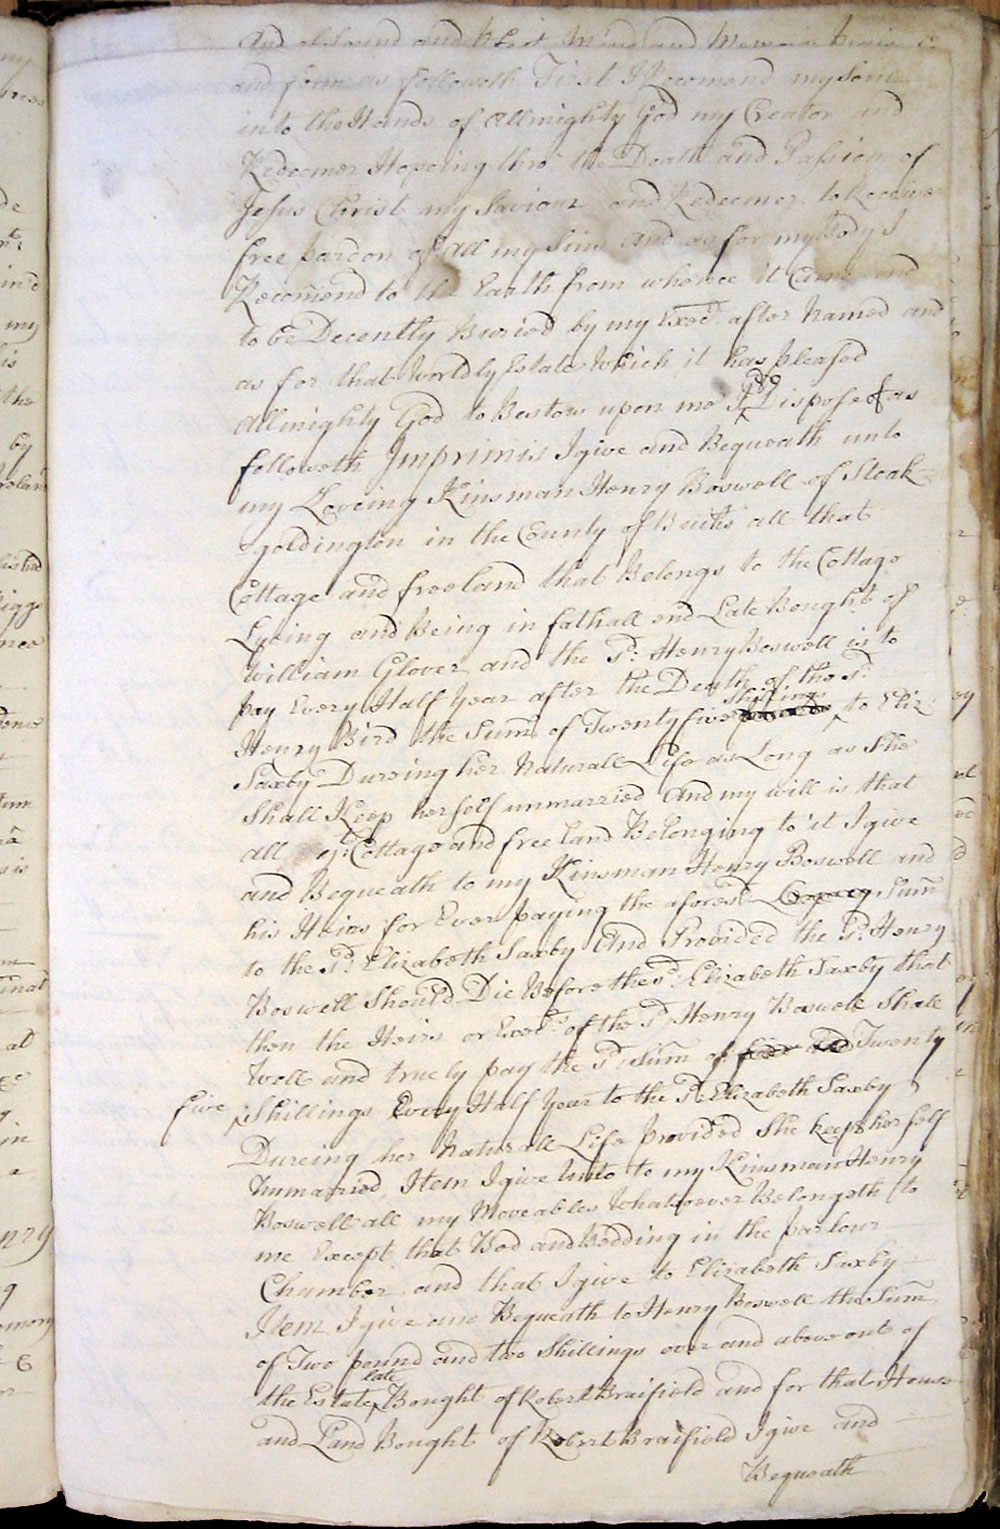 And of Sound and perfect Mind and Memory
and form as followeth First I Recomend my Soul
into the Hands of Allmighty God my Creator and
Redeemer Hopeing thro' the Death and Passion of
Jesus Christ my Saviour and Redeemer to Receive
free pardon of All my Sins And as for my Body I
Recom̄end to the Earth from whence it Came and
to be Decently Buried by my Exec:rs after Named and
as for that Worldly Estate Which it has pleased
Allmighty God to Bestow upon me I do Dispose of as
followeth Imprimis I give and Bequeath unto
my Loveing Kinsman Henry Boswell of Stoak=
=goldington in the County of Bucks all that
Cottage and free land that Belongs to the Cottage
Lyeing and Being in fathall end Late Bought of
William Glover and the Sd: Henry Boswell is to
pay Every Half Year after the Death of the Sd:
Henry Bird the Sum̄ of Twenty five Shillings to Eliz:
Saxby Dureing her Naturall Life as Long as She
Shall Keep herself unmarried And my will is that
all ye: Cottage and free Land Belonging to it I give
and Bequeath to my Kinsman Henry Boswell and
his Heirs for Ever paying the aforesd Sum̄
to the Sd: Elizabeth Saxby And Provided the Sd: Henry
Boswell Should Die Before the sd: Elizabeth Saxby that
then the Heirs or Execrs of the Sd Henry Boswell Shall
Well and truely pay the Sd Sum̄ of Twenty
five Shillings Every Half Year to the Sd: Elizabeth Saxby
Dureing her Naturall Life provided She keeps herself
Unmarried, Item I give Unto to my Kinsman Henry
Boswell all my Moveables Whatsoever Belongeth to
me Except that Bed and Bedding in the parlour
Chamber and that I give to Elizabeth Saxby
Item I give and Bequeath to Henry Boswell the Sum̄
of Two pound and two Shillings over and above out of
the Estate late Bought of Robert Braifield and for that House
and Land Bought of Robert Braifield I give and
Bequeath